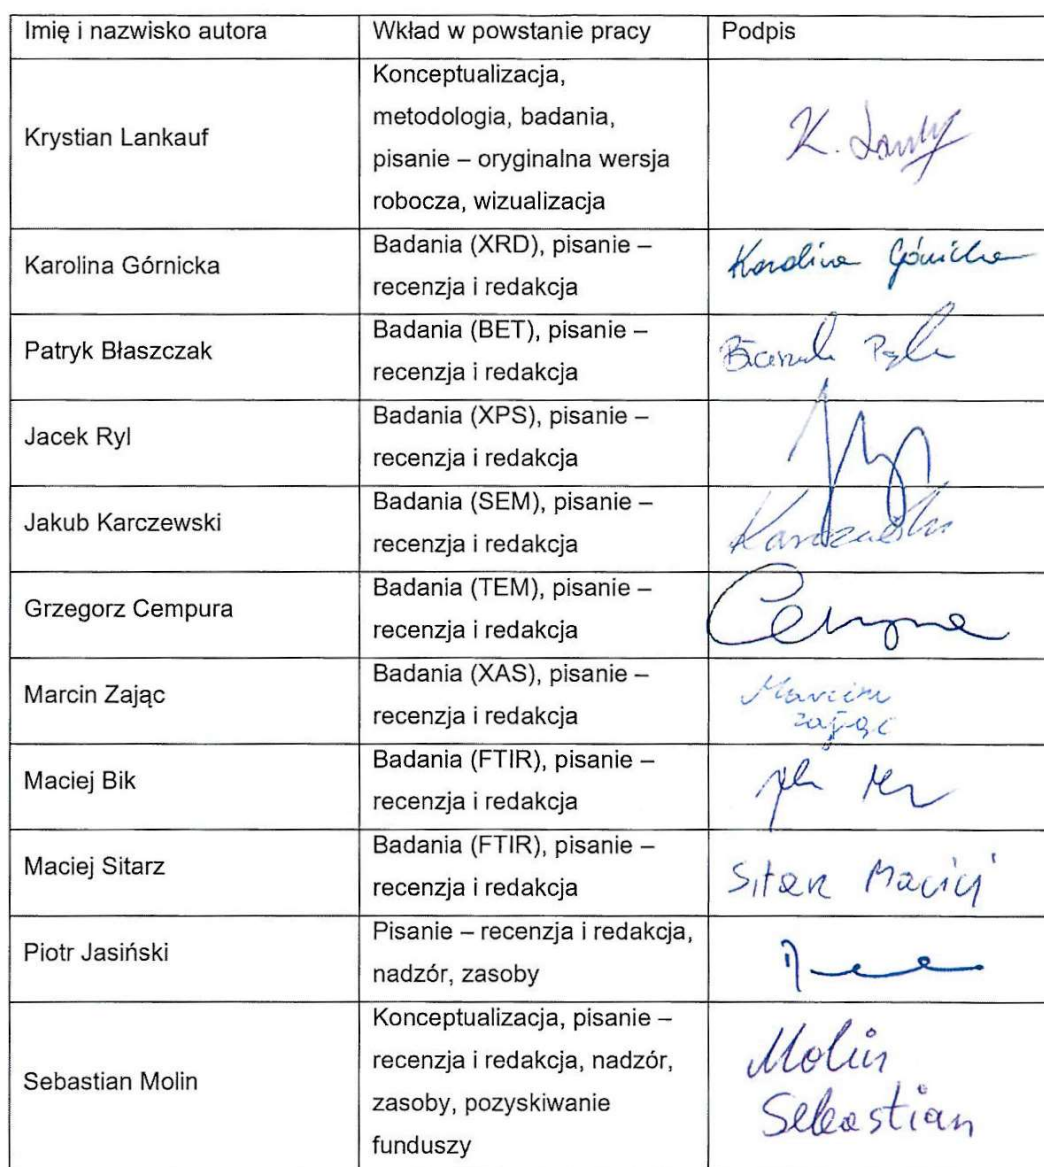 Imię i nazwisko autora Wkład w powstanie pracy Podpis
Krystian Lankauf
Konceptualizacja,
metodologia, badania,
pisanie – oryginalna wersja
robocza, wizualizacja
K.
Karolina Górnicka
Badania (XRD), pisanie –
recenzja i redakcja
Karolina Górnicka
Patryk Błaszczak
Badania (BET), pisanie –
recenzja i redakcja
Jacek Ryl
Badania (XPS), pisanie –
recenzja i redakcja
Jakub Karczewski
Badania (SEM), pisanie –
recenzja i redakcja
Karczewski
Grzegorz Cempura
Badania (TEM), pisanie –
recenzja i redakcja
Marcin Zając
Badania (XAS), pisanie –
recenzja i redakcja
Marcin
Zając
Maciej Bik
Badania (FTIR), pisanie –
recenzja i redakcja
Maciej Sitarz
Badania (FTIR), pisanie –
recenzja i redakcja
Sitarz Maciej
Piotr Jasiński
Pisanie – recenzja i redakcja,
nadzór, zasoby
Sebastian Molin
Konceptualizacja, pisanie –
recenzja i redakcja, nadzór,
zasoby, pozyskiwanie
funduszy
Molin
Sebastian